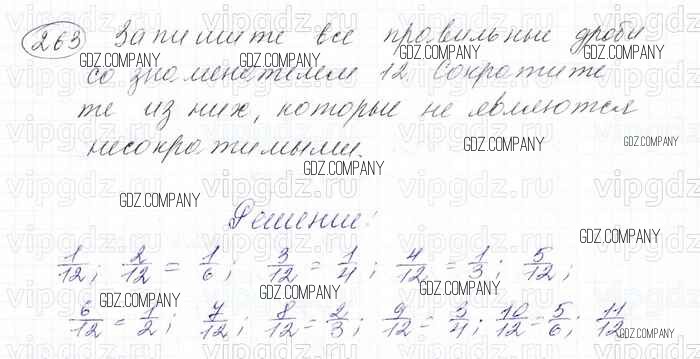 263 Запишите все правильные дроби
со знаменателем 12. Сократите
те из них, которые не являются
несократимыми.
Решение:
1/12; 2/12 = 1/6; 3/12 = 1/4; 4/12 = 1/3; 5/12;
6/12 = 1/2; 7/12; 8/12 = 2/3; 9/12 = 3/4; 10/12 = 5/6; 11/12